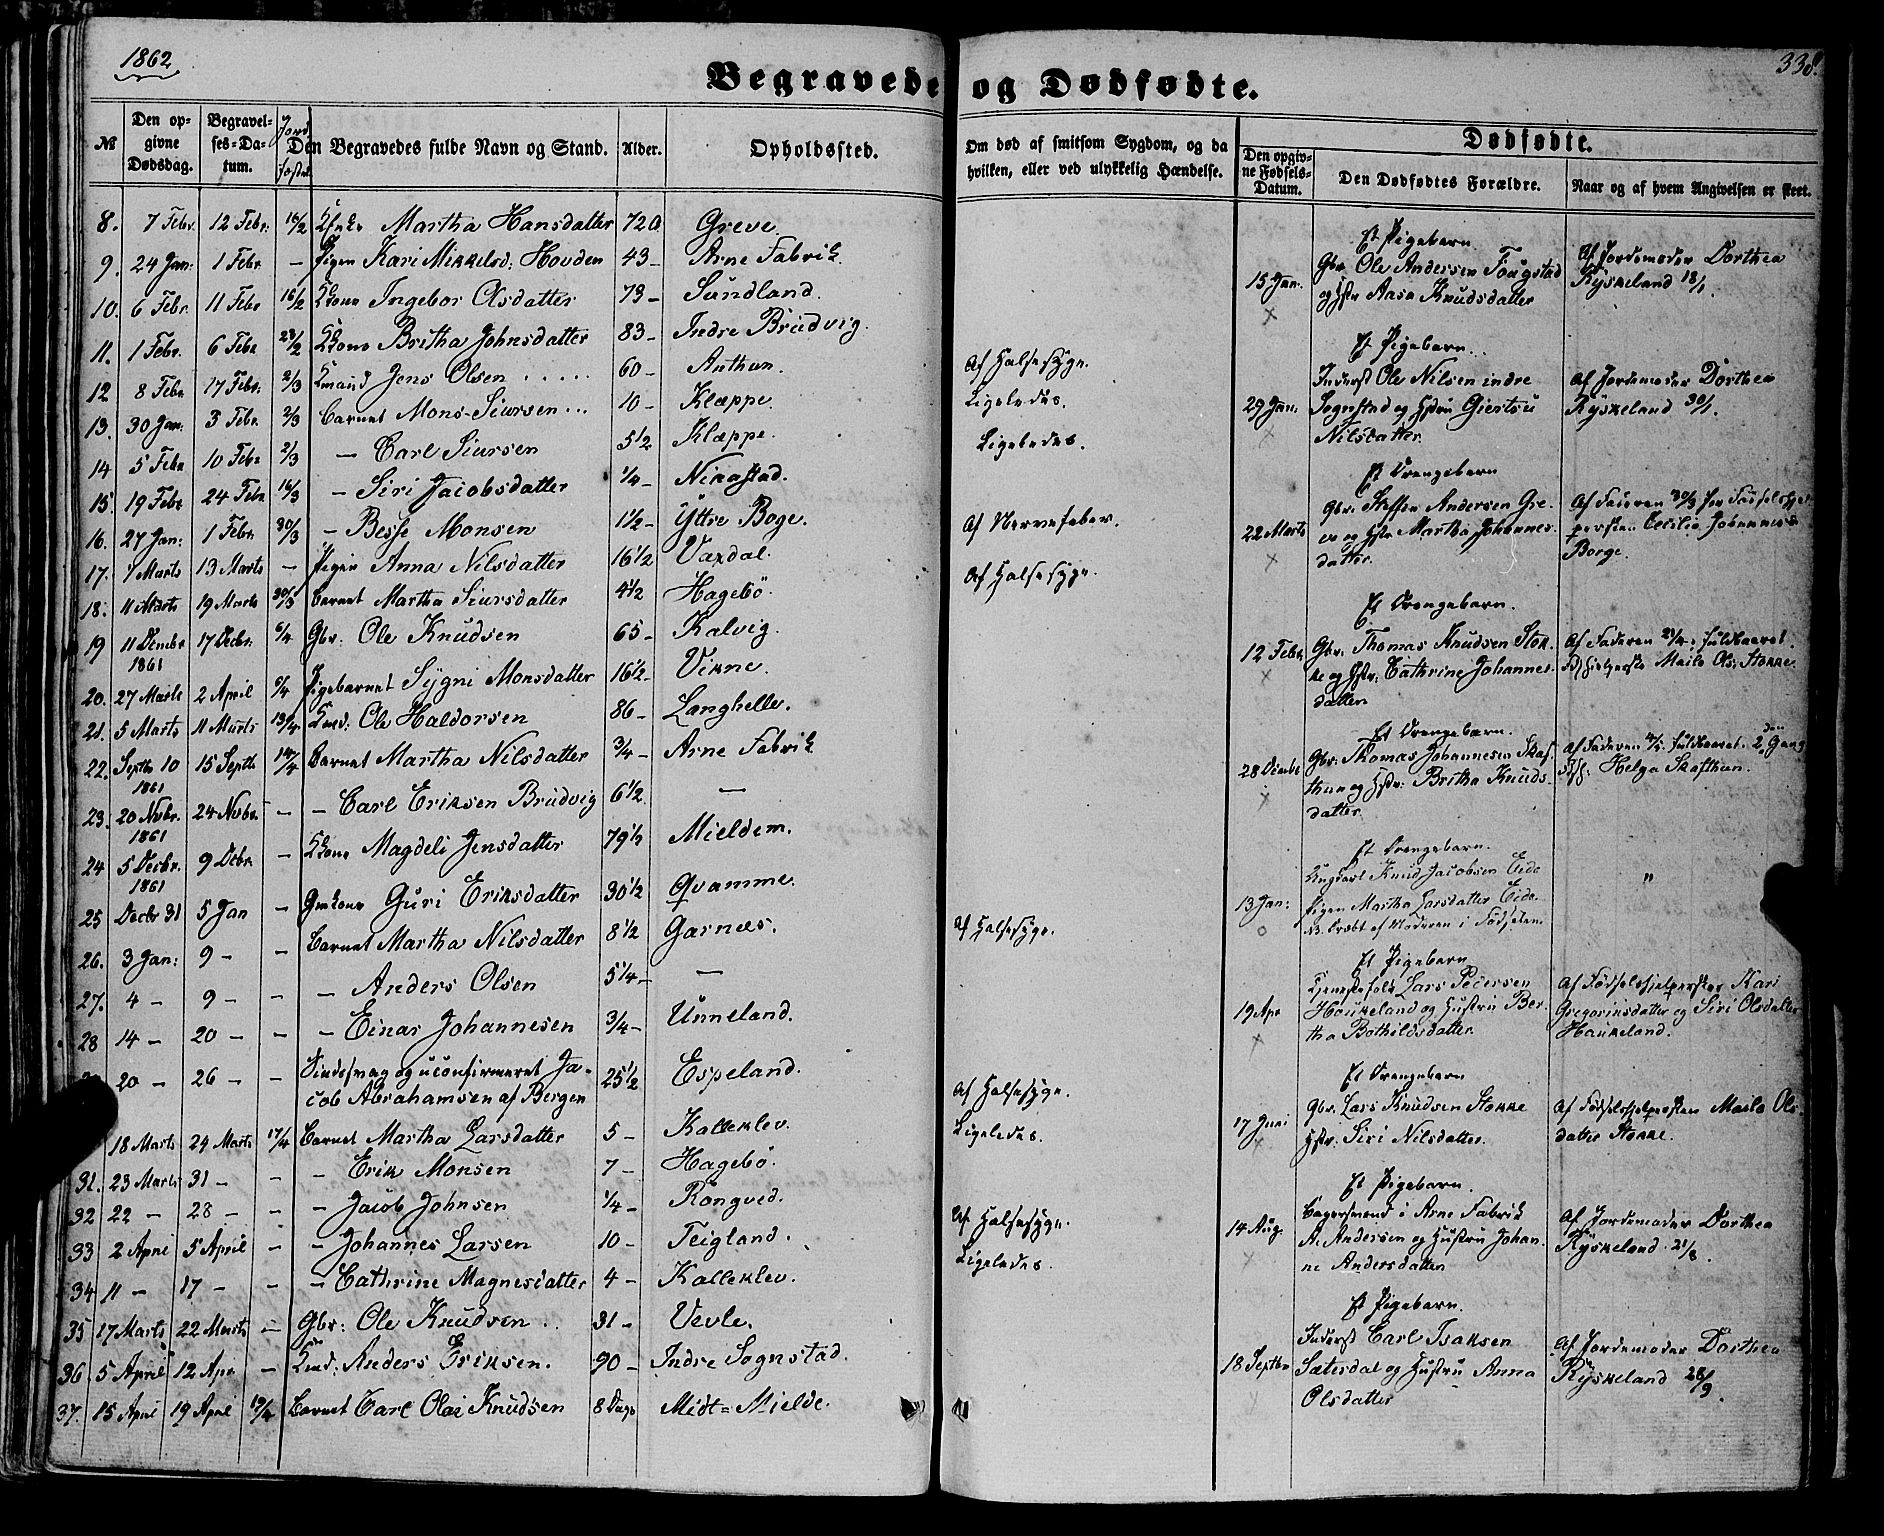 1862
338.
Begravede og Dødfødte.
№ Den opgivne Dødsdag. Begravelses-Datum. Jordfæstet Den Begravedes fulde Navn og Stand. Alder. Opholdssted. Om død af smitsom Sygdom, og da hvilken, eller ved ulykkelig Hændelse.
Dødfødte.
Den opgivne Fødsels-Datum. Den Dødfødtes Forældre. Naar og af hvem Angivelsen er skeet.
8. 7 Febr. 12 Febr. 16/2 Martha Hansdatter 72 Greve.
9. 24 Jan: 1 Febr. – Pigen Kari Mikkelsd: Houden 43 – Arne Fabrik.
10. 6 Febr. 11 Febr 16/2 Kkone Ingebor Olsdatter 73 – Sundland.
11. 1 Febr. 6 Febr 23/2 Kkone Britha Johnsdatter 83 – Indre Brudvig.
12 8 Febr 17 Febr. 2/3 Kmand Jens Olsen ..... 60 – Anthun. Af Halsesyge.
13. 30 Jan. 3 Febr. 2/3 Barnet Mons Siursen ... 10 – Klæppe. Ligeledes.
14 5 Febr 10 Febr 2/3 – Carl Siursen 5 1/2 Klæppe. Ligeledes.
15. 19 Febr 24 Febr 16/3 – Siri Jacobsdatter 1/4 – Nikastad.
16. 27 Jan: 1 Febr. 30/3 – Besse Monsen 1 1/2 – Yttre Boge. Af Nervefeber.
17. 7 Marts 13 Marts – Pigen Anna Nilsdatter 16 1/2 Vaxdal.
18. 11 Marts 19 Marts 30/3 Barnet Martha Siursdatter 4 1/2 Hagebø. Af Halsesyge.
19 11 Decembr 1861 17 Decbr. 6/4 Gbr. Ole Knudsen 65 – Kalvig.
20. 27 Marts 2 April 6/4 Pigebarnet Sygni Monsdatter 16 1/2 – Vikne.
21. 5 Marts 11 Marts 13/4 Kmd: Ole Haldorsen 86 – Langhelle.
22. Septbr 10 1861 15 Septbr 14/4 Barnet Martha Nilsdatter 3/4 – Arne Fabrik
23. 20 Nvbr. 1861 24 Nvbr. – – Carl Eriksen Brudvig 6 1/2 –
24 5 Decbr. 1861 9 Dcbr. – Kkone Magdeli Jensdatter 79 1/2 Mieldem.
25 Decbr 31 5 Jan – Gmkone Guri Eriksdatter 30 1/2 Qvamme.
26. 3 Jan: 9 – – Barnet Martha Nilsdatter 8 1/2 Garnæs. Af Halsesyge.
27. 4 – 9 – – – Anders Olsen 5 1/4 – –
28 14 – 20 – – – Einar Johannesen 3/4 – Unneland.
20 – 26 – – Sindssvag og uconfirmeret Jacob Abrahamsen af Bergen 25 1/2 Espeland.
18 Marts 24 Marts 17/4 Barnet Martha Larsdatter 5 – Kalleklev. Af Halsesyge.
31. 23 Marts 31 – – – Erik Monsen 7 – Hagebø. Ligeledes.
32 22 – 28 – – – Jacob Johnsen 1/4 – Rongved.
33 2 April 5 April – – Johannes Larsen 10 – Teigland. Af Halsesyge.
34 11 – 17 – – – Cathrine Magnesdatter 4 – Kalleklev. Ligeledes.
35 17 Marts 22 Marts – Gbr: Ole Knudsen .. 31 – Vevle.
36. 5 April 12 Apr. – Kmd: Anders Eriksen. 90 – Indre Sognstad.
37. 15 April 19 April 19/4 Barnet Carl Olai Knudsen 8 Dage Midt=Mielde.
15 Jan. Et Pigebarn.
Gbr Ole Andersen Fougstad
og Hstr Aasa Knudsdatter
Af Jordemoder Dorthea
Ryskeland 18/1.
29 Jan. Et Pigebarn.
Inderst Ole Nilsen indre
Sognstad og Hstru Giertru
Nilsdatter.
Af Jordemoder Dorthea
Ryskeland 30/1.
22 Marts Et Drengebarn
Gbr. Steffen Andersen Greve og Hstr Martha Johannesdatter.
Af Faderen 30/3 Cecilia Johannesd
Borge.
12 Febr. Et Drengebarn.
Gbr. Thomas Knudsen Stokke og Hstr. Cathrine Johannesdatter
Af Faderen 21/4: fuldbaaret.
Maile Ols: Stokke.
28 Decmbr Et Drengebarn.
Gbr. Thomas Johannesen Skafthun og Hstr: Britha Knudsdatter.
Af Faderen 4/5. fuldbaaret. 2den Gang
Helga Skafthun.
13 Jan: Et Drengebarn.
Ungkarl Knud Jacobsen Eide
Pigen Martha Larsdatter Eide.
NB. Dræbt af Moderen i Fødselen.
"
19 Apr Et Pigebarn
Tjenestefolk Lars Pedersen
Houkeland og Hustru Bertha Bothildsdatter
Af Fødselshjelpersker Kari
Gregoriusdatter og Siri Olsdatter
Haukeland.
17 Juni Et Drengebarn
Gbr. Lars Knudsen Stokke
Hstr. Siri Nilsdatter.
Af Fødselshjelpersken Maile Olsdatter Stokke.
14 Aug. Et Pigebarn.
Bagersvend i Arne Fabrik
A. Andersen og Hustru Johanne Andersdatter
Af Jordemoder Dorthea
Ryskeland 21/8.
18 Septbr Et Pigebarn.
Inderst Carl Isaksen
Sætersdal og Hustru Anna
Olsdatter
Af Jordemoder Dorthea
Ryskeland 28/9.